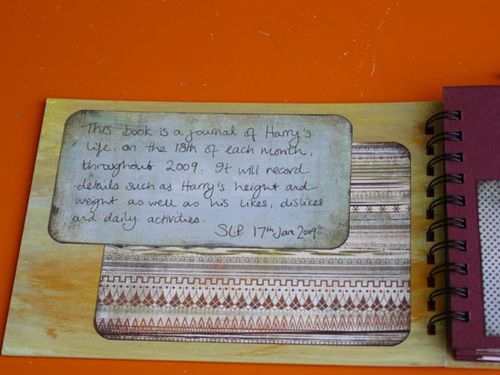 This book is a journal of Harry's
life, on the 18th of each month,
throughout 2009. It will record
details such as Harry's height and
weight as well as his likes, dislikes
and daily activities.
SLP 17th Jan 2009